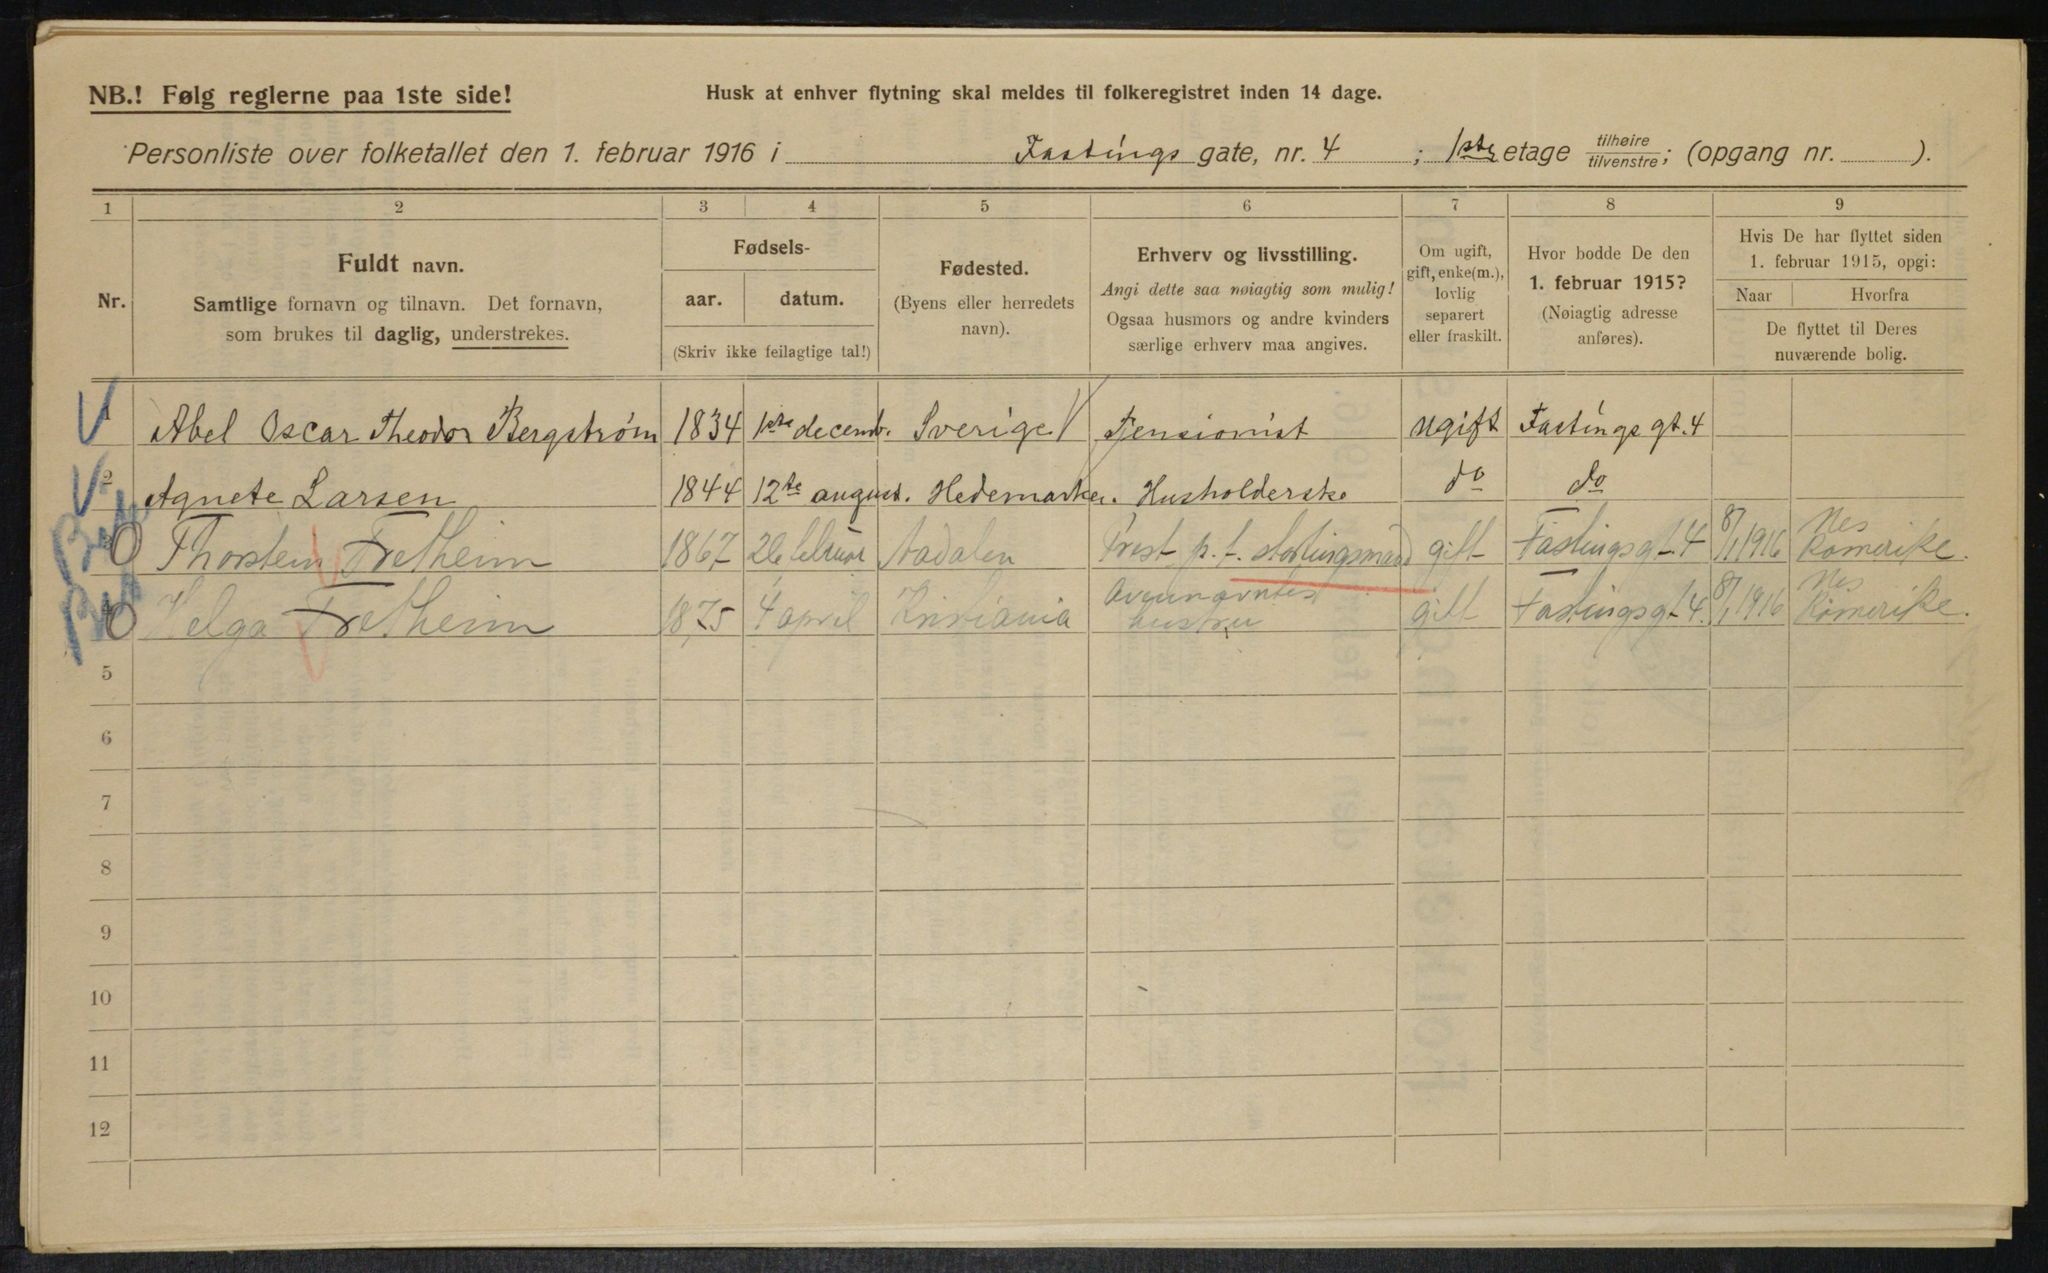 NB.! Følg reglerne paa 1ste side!
Husk at enhver flytning skal meldes til folkeregistret inden 14 dage.
Personliste over folketallet den 1. februar 1916 i Fastings gate, nr. 4 ; 1ste etage tilhøire/tilvenstre; (opgang nr. ).
1 2 3 4 5 6 7 8 9
Nr.
Fuldt navn.
Samtlige fornavn og tilnavn. Det fornavn,
som brukes til daglig, understrekes.
Fødsels-
aar. datum.
(Skriv ikke feilagtige tal!)
Fødested.
(Byens eller herredets
navn).
Erhverv og livsstilling.
Angi dette saa nøiagtig som mulig!
Ogsaa husmors og andre kvinders
særlige erhverv maa angives.
Om ugift,
gift, enke(m.),
lovlig
separert
eller fraskilt.
Hvor bodde De den
1. februar 1915?
(Nøiagtig adresse
anføres).
Hvis De har flyttet siden
1. februar 1915, opgi:
Naar Hvorfra
De flyttet til Deres
nuværende bolig.
1 Abel Oscar Theodor Bergstrøm 1834 1ste decemb. Sverige Pensionist ugift Fastings gt. 4
2 Agnete Larsen 1844 12te august. Hedemarken. Husholderske do do
Thorstein Fretheim 1867 26 februar Aadalen Prest p.t. stortingsmand gift Fastingsgt. 4 8/1 1916 Nes Romerike.
Helga Fretheim 1875 4 april Kristiania Ovennævntes hustru gift Fastingsgt 4. 8/1 1916 Nes Romerike.
5
6
7
8
9
10
11
12